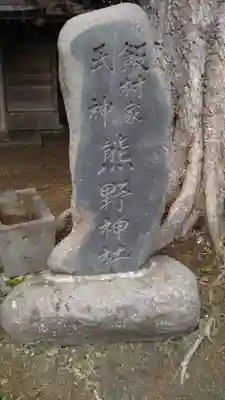 飯村家
氏神 熊野神社